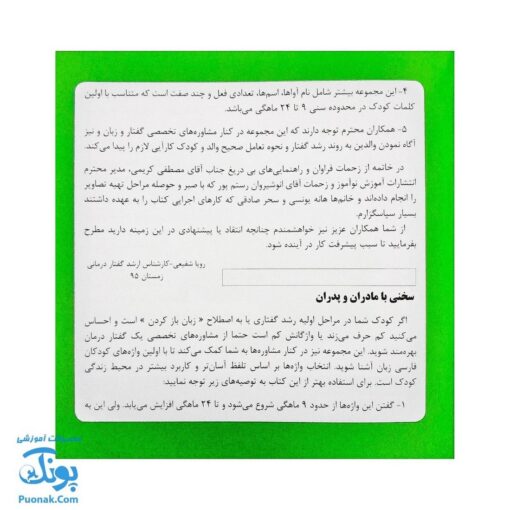 ۴- این مجموعه بیشتر شامل نام آواها، اسم‌ها، تعدادی فعل و چند صفت است که متناسب با اولین
کلمات کودک در محدوده سنی ۹ تا ۲۴ ماهگی می‌باشد.
۵- همکاران محترم توجه دارند که این مجموعه در کنار مشاوره‌های تخصصی گفتار و زبان و نیز
آگاه نمودن والدین به روند رشد گفتار و نحوه تعامل صحیح والد و کودک کارآیی لازم را پیدا می‌کند.
در خاتمه از زحمات فراوان و راهنمایی‌های بی دریغ جناب آقای مصطفی کریمی، مدیر محترم
انتشارات آموزش نوآموز و زحمات آقای انوشیروان رستم پور که با صبر و حوصله مراحل تهیه تصاویر
را انجام داده‌اند و خانم‌ها هانه یونسی و سحر صادقی که کارهای اجرایی کتاب را به عهده داشتند
بسیار سپاسگزارم.
از شما همکاران عزیز نیز خواهشمندم چنانچه انتقاد یا پیشنهادی در این زمینه دارید مطرح
بفرمایید تا سبب پیشرفت کار در آینده شود.
رویا شفیعی-کارشناس ارشد گفتار درمانی
زمستان ۹۵
سخنی با مادران و پدران
اگر کودک شما در مراحل اولیه رشد گفتاری یا به اصطلاح « زبان باز کردن » است و احساس
می‌کنید کم حرف می‌زند یا واژگانش کم است حتما از مشاوره‌های تخصصی یک گفتار درمان
بهره‌مند شوید. این مجموعه نیز در کنار مشاوره‌ها به شما کمک می‌کند تا با اولین واژه‌های کودکان
فارسی زبان آشنا شوید. انتخاب واژه‌ها بر اساس تلفظ آسان‌تر و کاربرد بیشتر در محیط زندگی
کودک است. برای استفاده بهتر از این کتاب به توصیه‌های زیر توجه نمایید:
۱- گفتن این واژه‌ها از حدود ۹ ماهگی شروع می‌شود و تا ۲۴ ماهگی افزایش می‌یابد. ولی این به
تجهیزات آموزشی
پونک
Puonak.Com